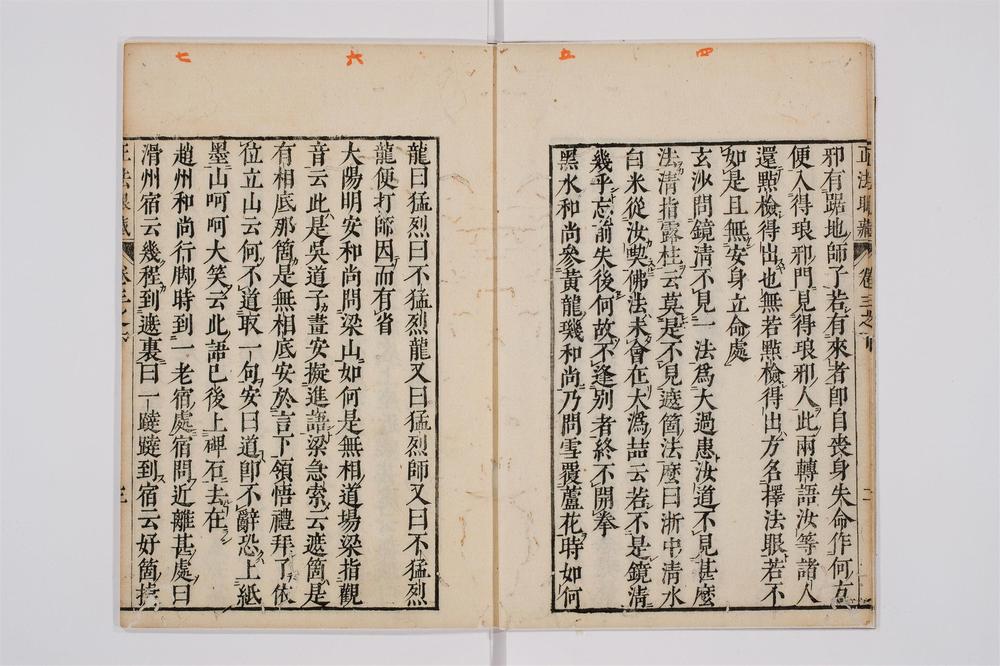 四
五
正法眼藏 卷三之
邪有踞地師子若有來者即自喪身失命作何方
便入得琅邪門見得琅邪人此兩轉語汝等諸人
還點檢得出也無若點檢得出方名擇法眼若不
如是且無安身立命處
玄沙問鏡清不見一法爲大過患汝道不見甚麼
法清指露柱云莫是不見遮箇法麼曰浙中清水
白米從汝喫佛法未會在大溈喆云若不是鏡清
幾乎忘前失後何故不逢別者終不開拳
黑水和尚參黃龍璣和尚乃問雪覆蘆花時如何
六
七
龍曰猛烈曰不猛烈龍又曰猛烈師又曰不猛烈
龍便打師因而有省
大陽明安和尚問梁山如何是無相道場梁指觀
音云此是吳道子畫安擬進語梁急索云遮箇是
有相底那箇是無相底安於言下領悟禮拜了依
位立山云何不道取一句安曰道即不辭恐上紙
墨山呵呵大笑云此語已後上碑石去在
趙州和尚行脚時到一老宿處宿問近離甚處曰
滑州宿云幾程到遮裏曰一躂躂到宿云好箇捷
正法眼藏 卷三之 三